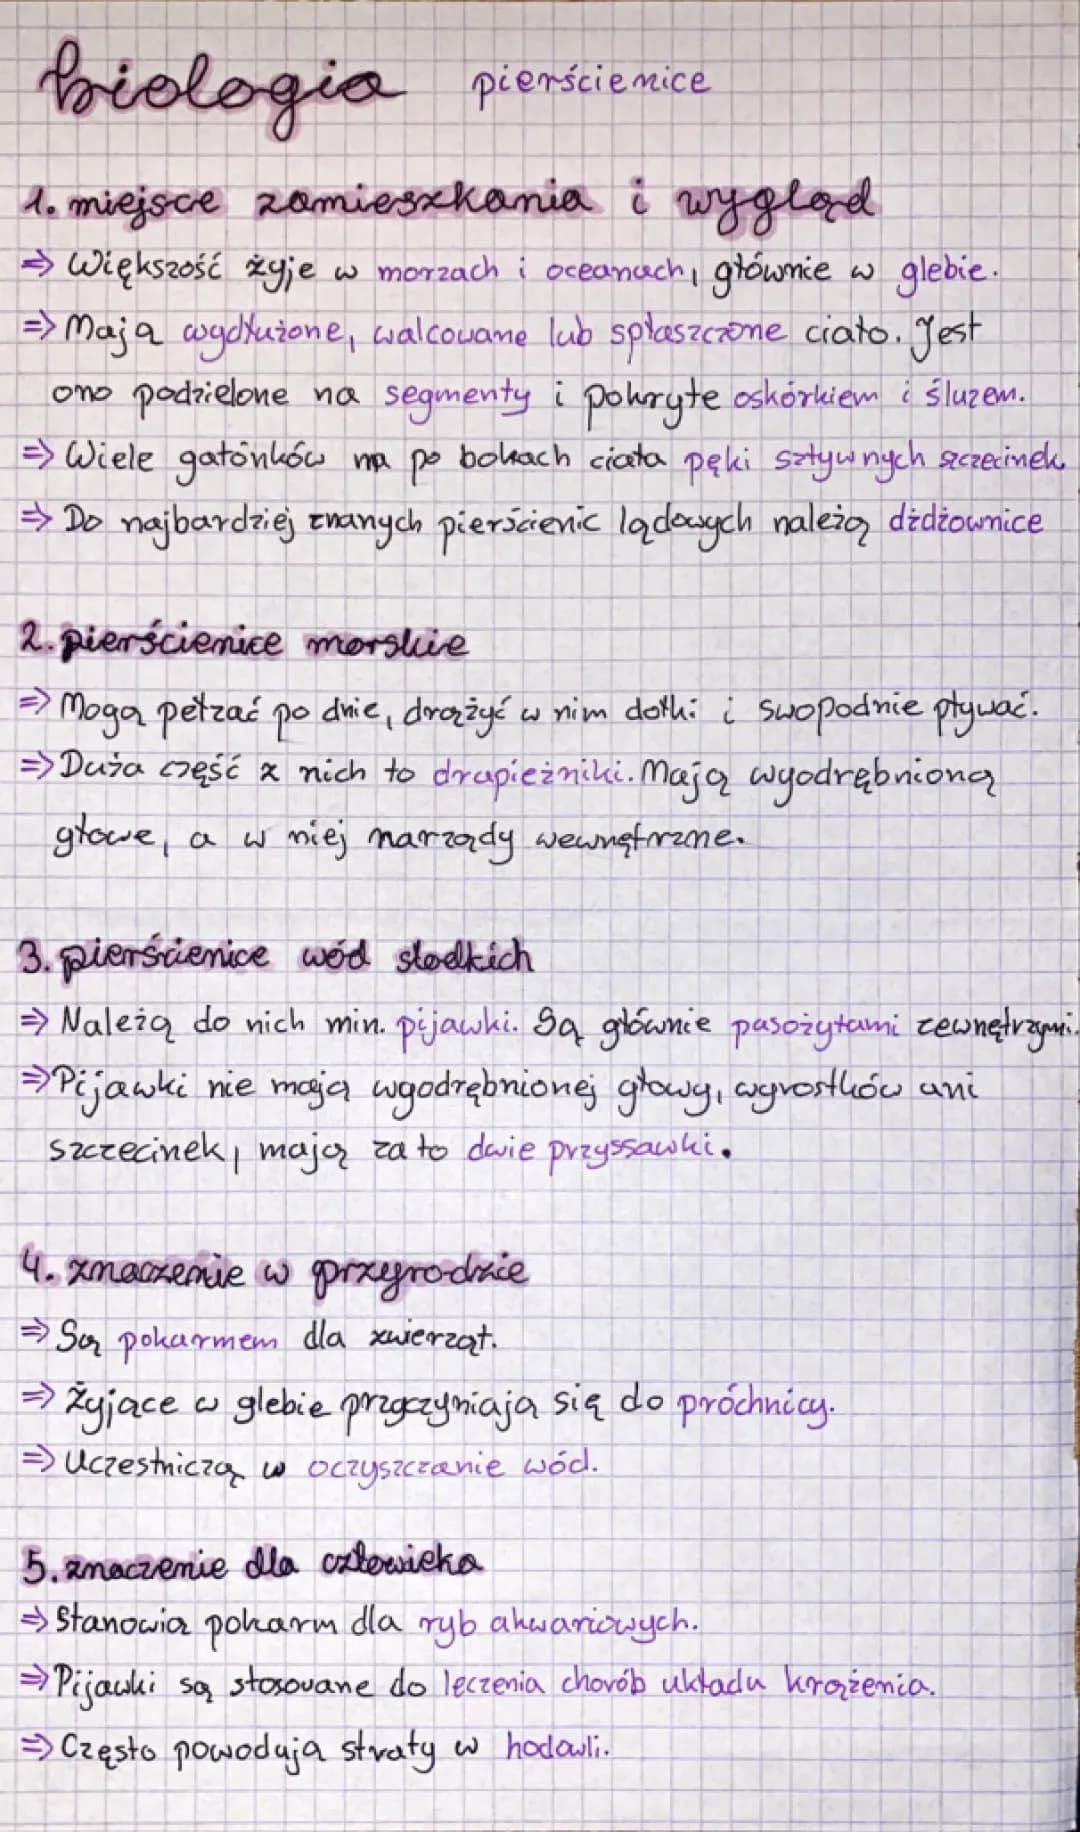 biologia pierścienice
1. miejsce zamieszkania i wygląd
⇒ Większość żyje w morzach i oceanach, głównie w glebie.
⇒ Mają wydłużone, walcowane lub spłaszczone ciało. Jest
ono podzielone na segmenty i pokryte oskórkiem i śluzem.
⇒ Wiele gatónków ma po bokach ciała pęki sztywnych szczecinek.
⇒ Do najbardziej znanych pierścienic lądowych należą dżdżownice
2. pierścienice morskie
⇒ Mogą pełzać po dnie, drążyć w nim dołki i swopodnie pływać.
⇒ Duża część z nich to drapieżniki. Mają wyodrębnioną
głowe, a w niej narządy wewnętrzne.
3. pierścienice wód słodkich
⇒ Należą do nich min. pijawki. Są głównie pasożytami zewnętrzymi.
⇒ Pijawki nie mają wyodrębnionej głowy, wyrostków ani
szczecinek, mają za to dwie przyssawki.
4. znaczenie w przyrodzie
⇒ Są pokarmem dla zwierząt.
⇒ Żyjące w glebie przyczyniają się do próchnicy.
⇒ Uczestniczą w oczyszczanie wód.
5. znaczenie dla człowieka
⇒ Stanowią pokarm dla ryb akwariowych.
⇒ Pijawki są stosovane do leczenia chorób układu krążenia.
⇒ Często powodują straty w hodowli.